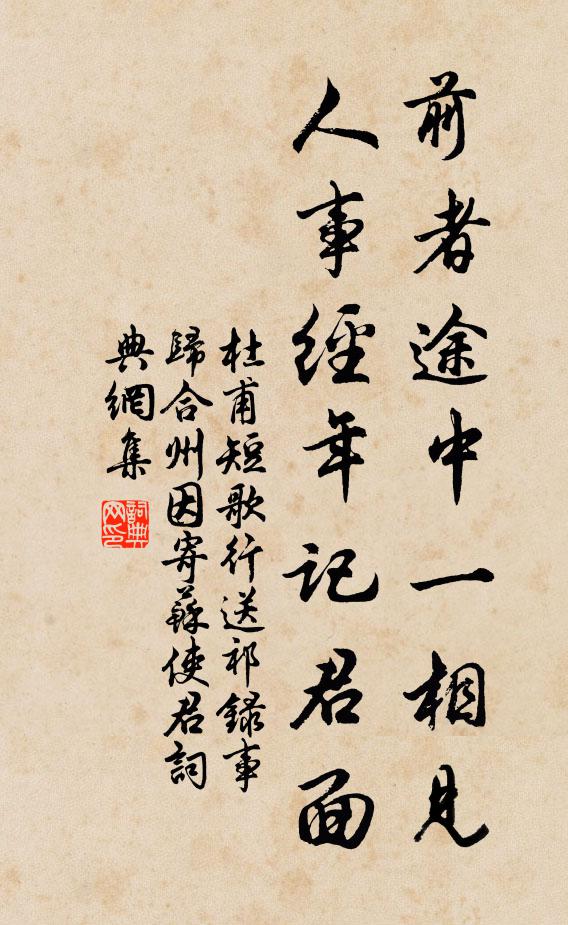 前者途中一相見
人事經年記君面
杜甫短歌行送祁錄事
歸合州因寄蘇使君詞
典網集
詞典
网印